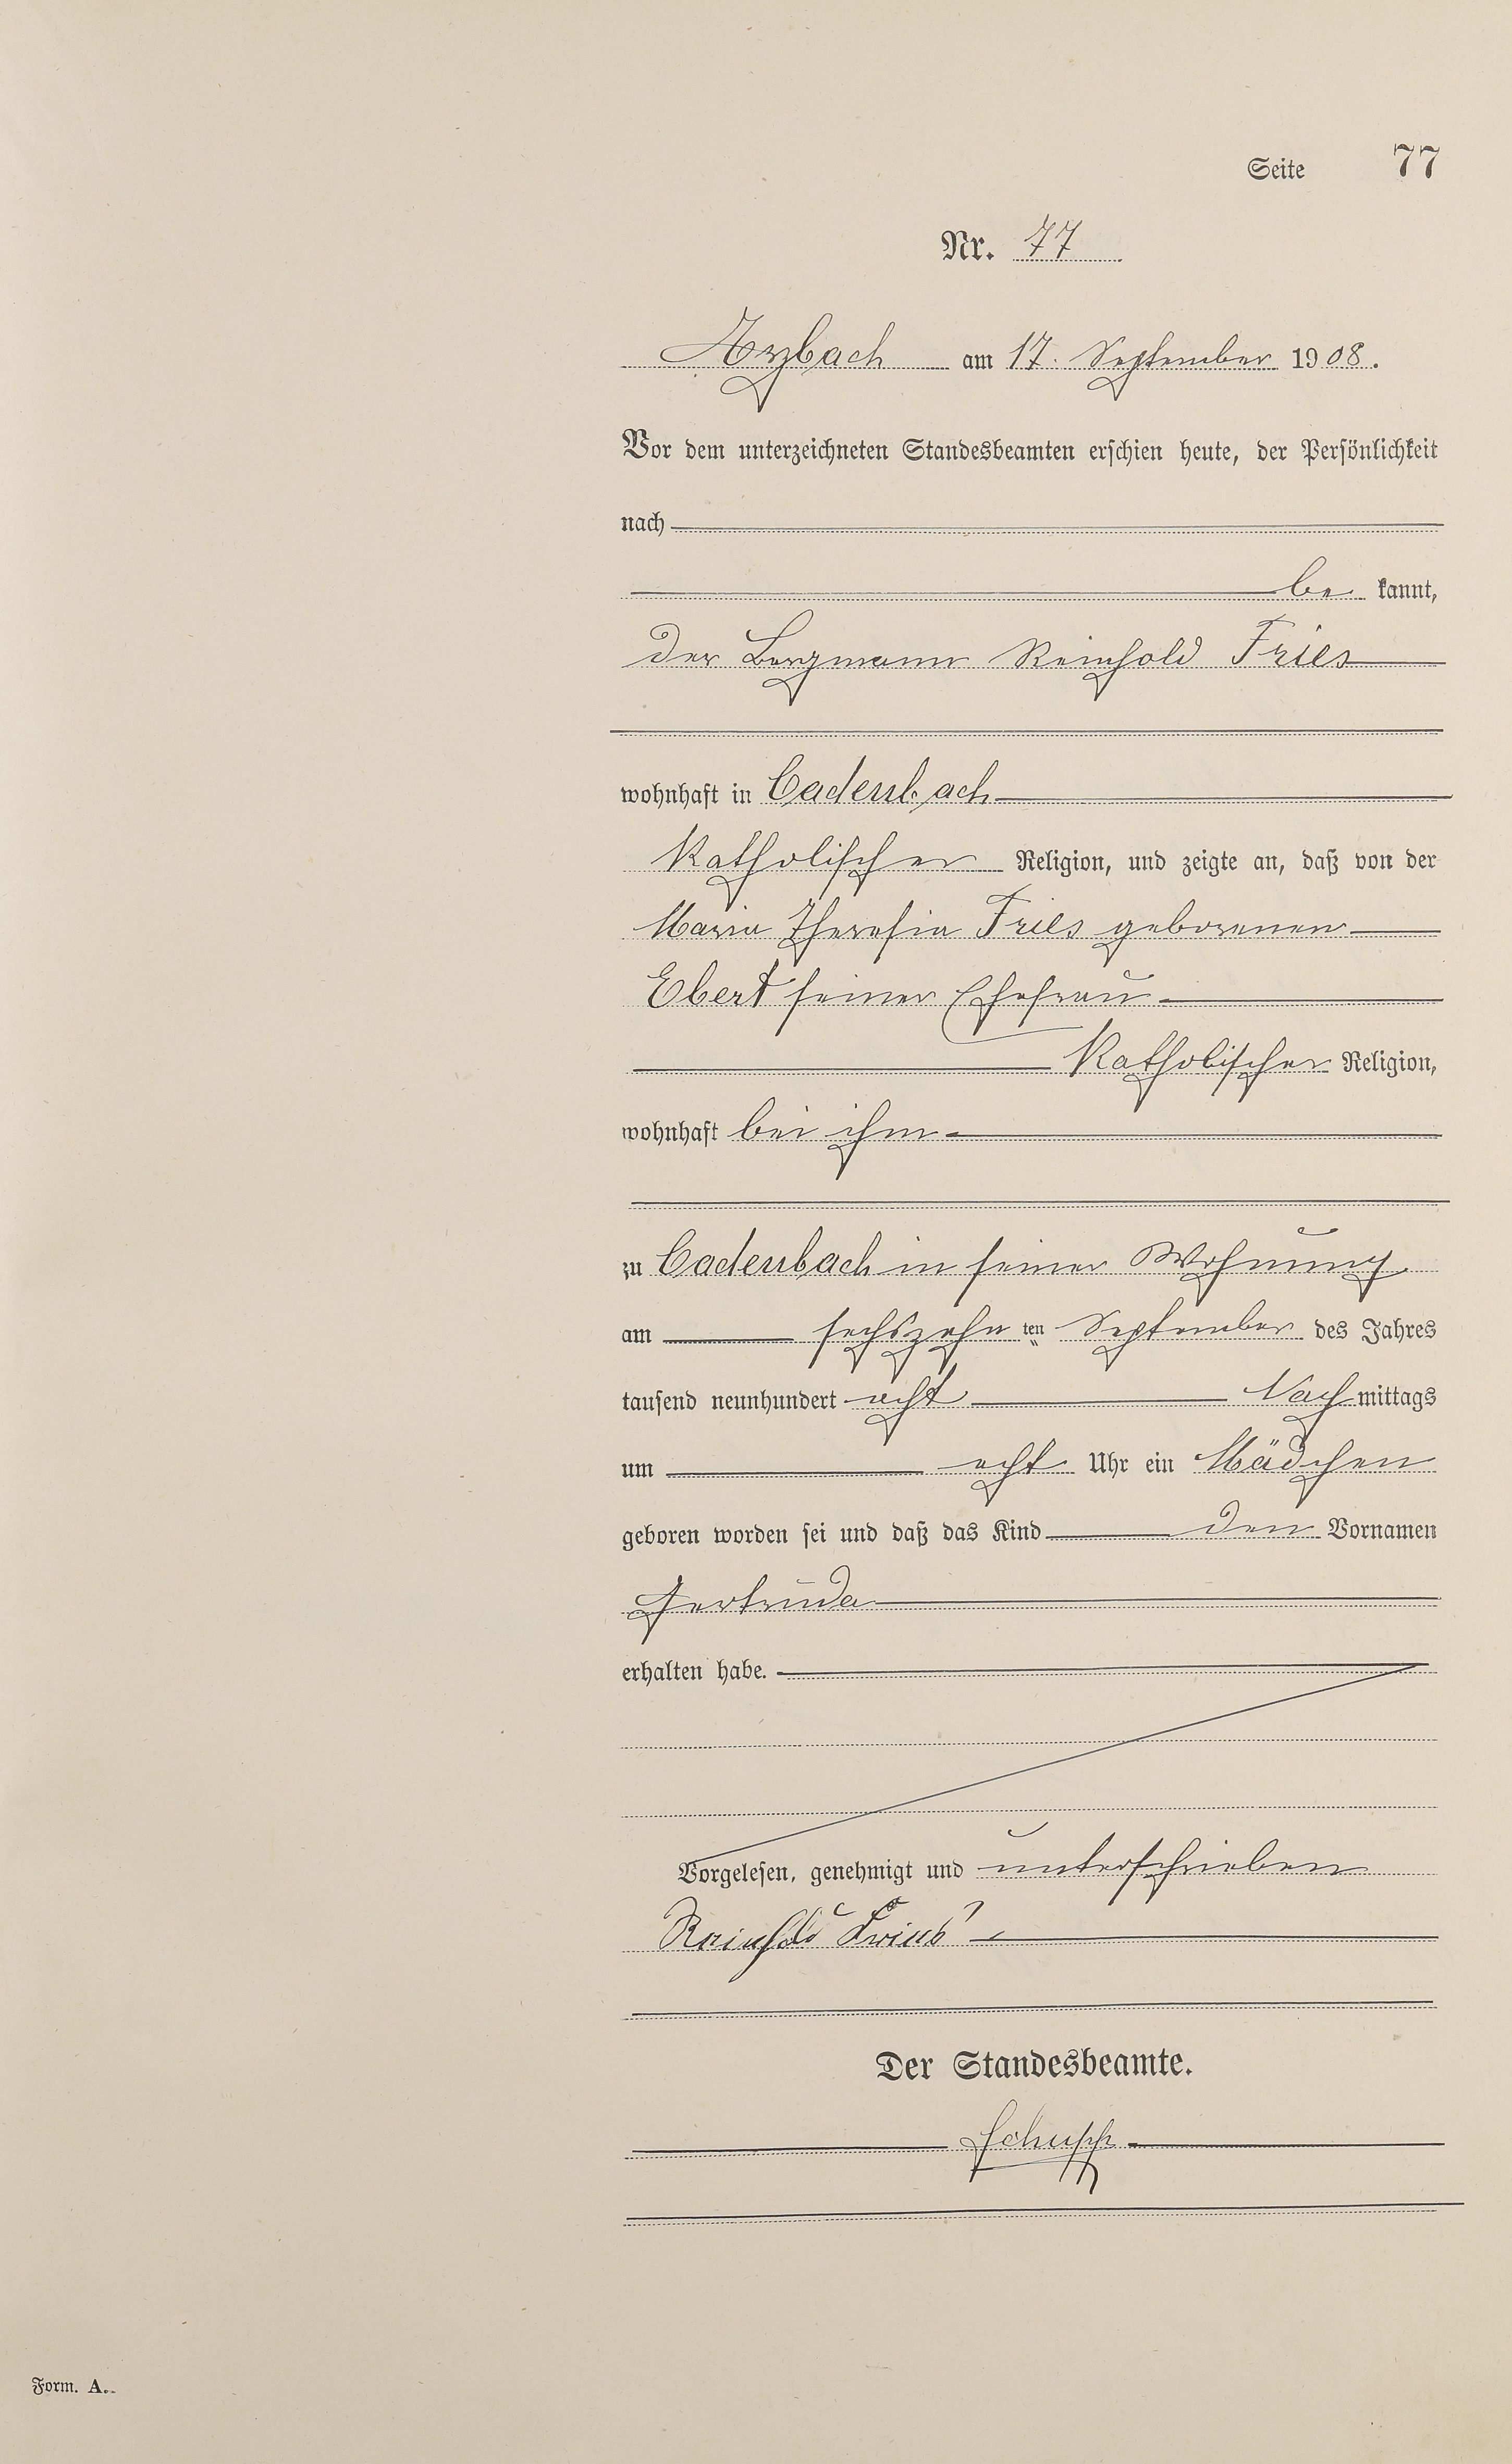 Seite 77
Nr. 77
Arzbach am 17. September 1908.
Vor dem unterzeichneten Standesbeamten erschien heute, der Persönlichkeit
nach
be kannt,
der Bergmann Reinhold Fries
wohnhaft in Cadenbach
katholischer Religion, und zeigte an, daß von der
Maria Theresia Fries geborenen
Ebert seiner Ehefrau
katholischer Religion,
wohnhaft bei ihm
zu Cadenbach in seiner Wohnung
am sechszehn ten September des Jahres
tausend neunhundert acht Nachmittags
um acht Uhr ein Mädchen
geboren worden sei und daß das Kind den Vornamen
Gertruda
erhalten habe.
Vorgelesen, genehmigt und unterschrieben
Reinhold Fries
Der Standesbeamte.
Schupp
Form. A.